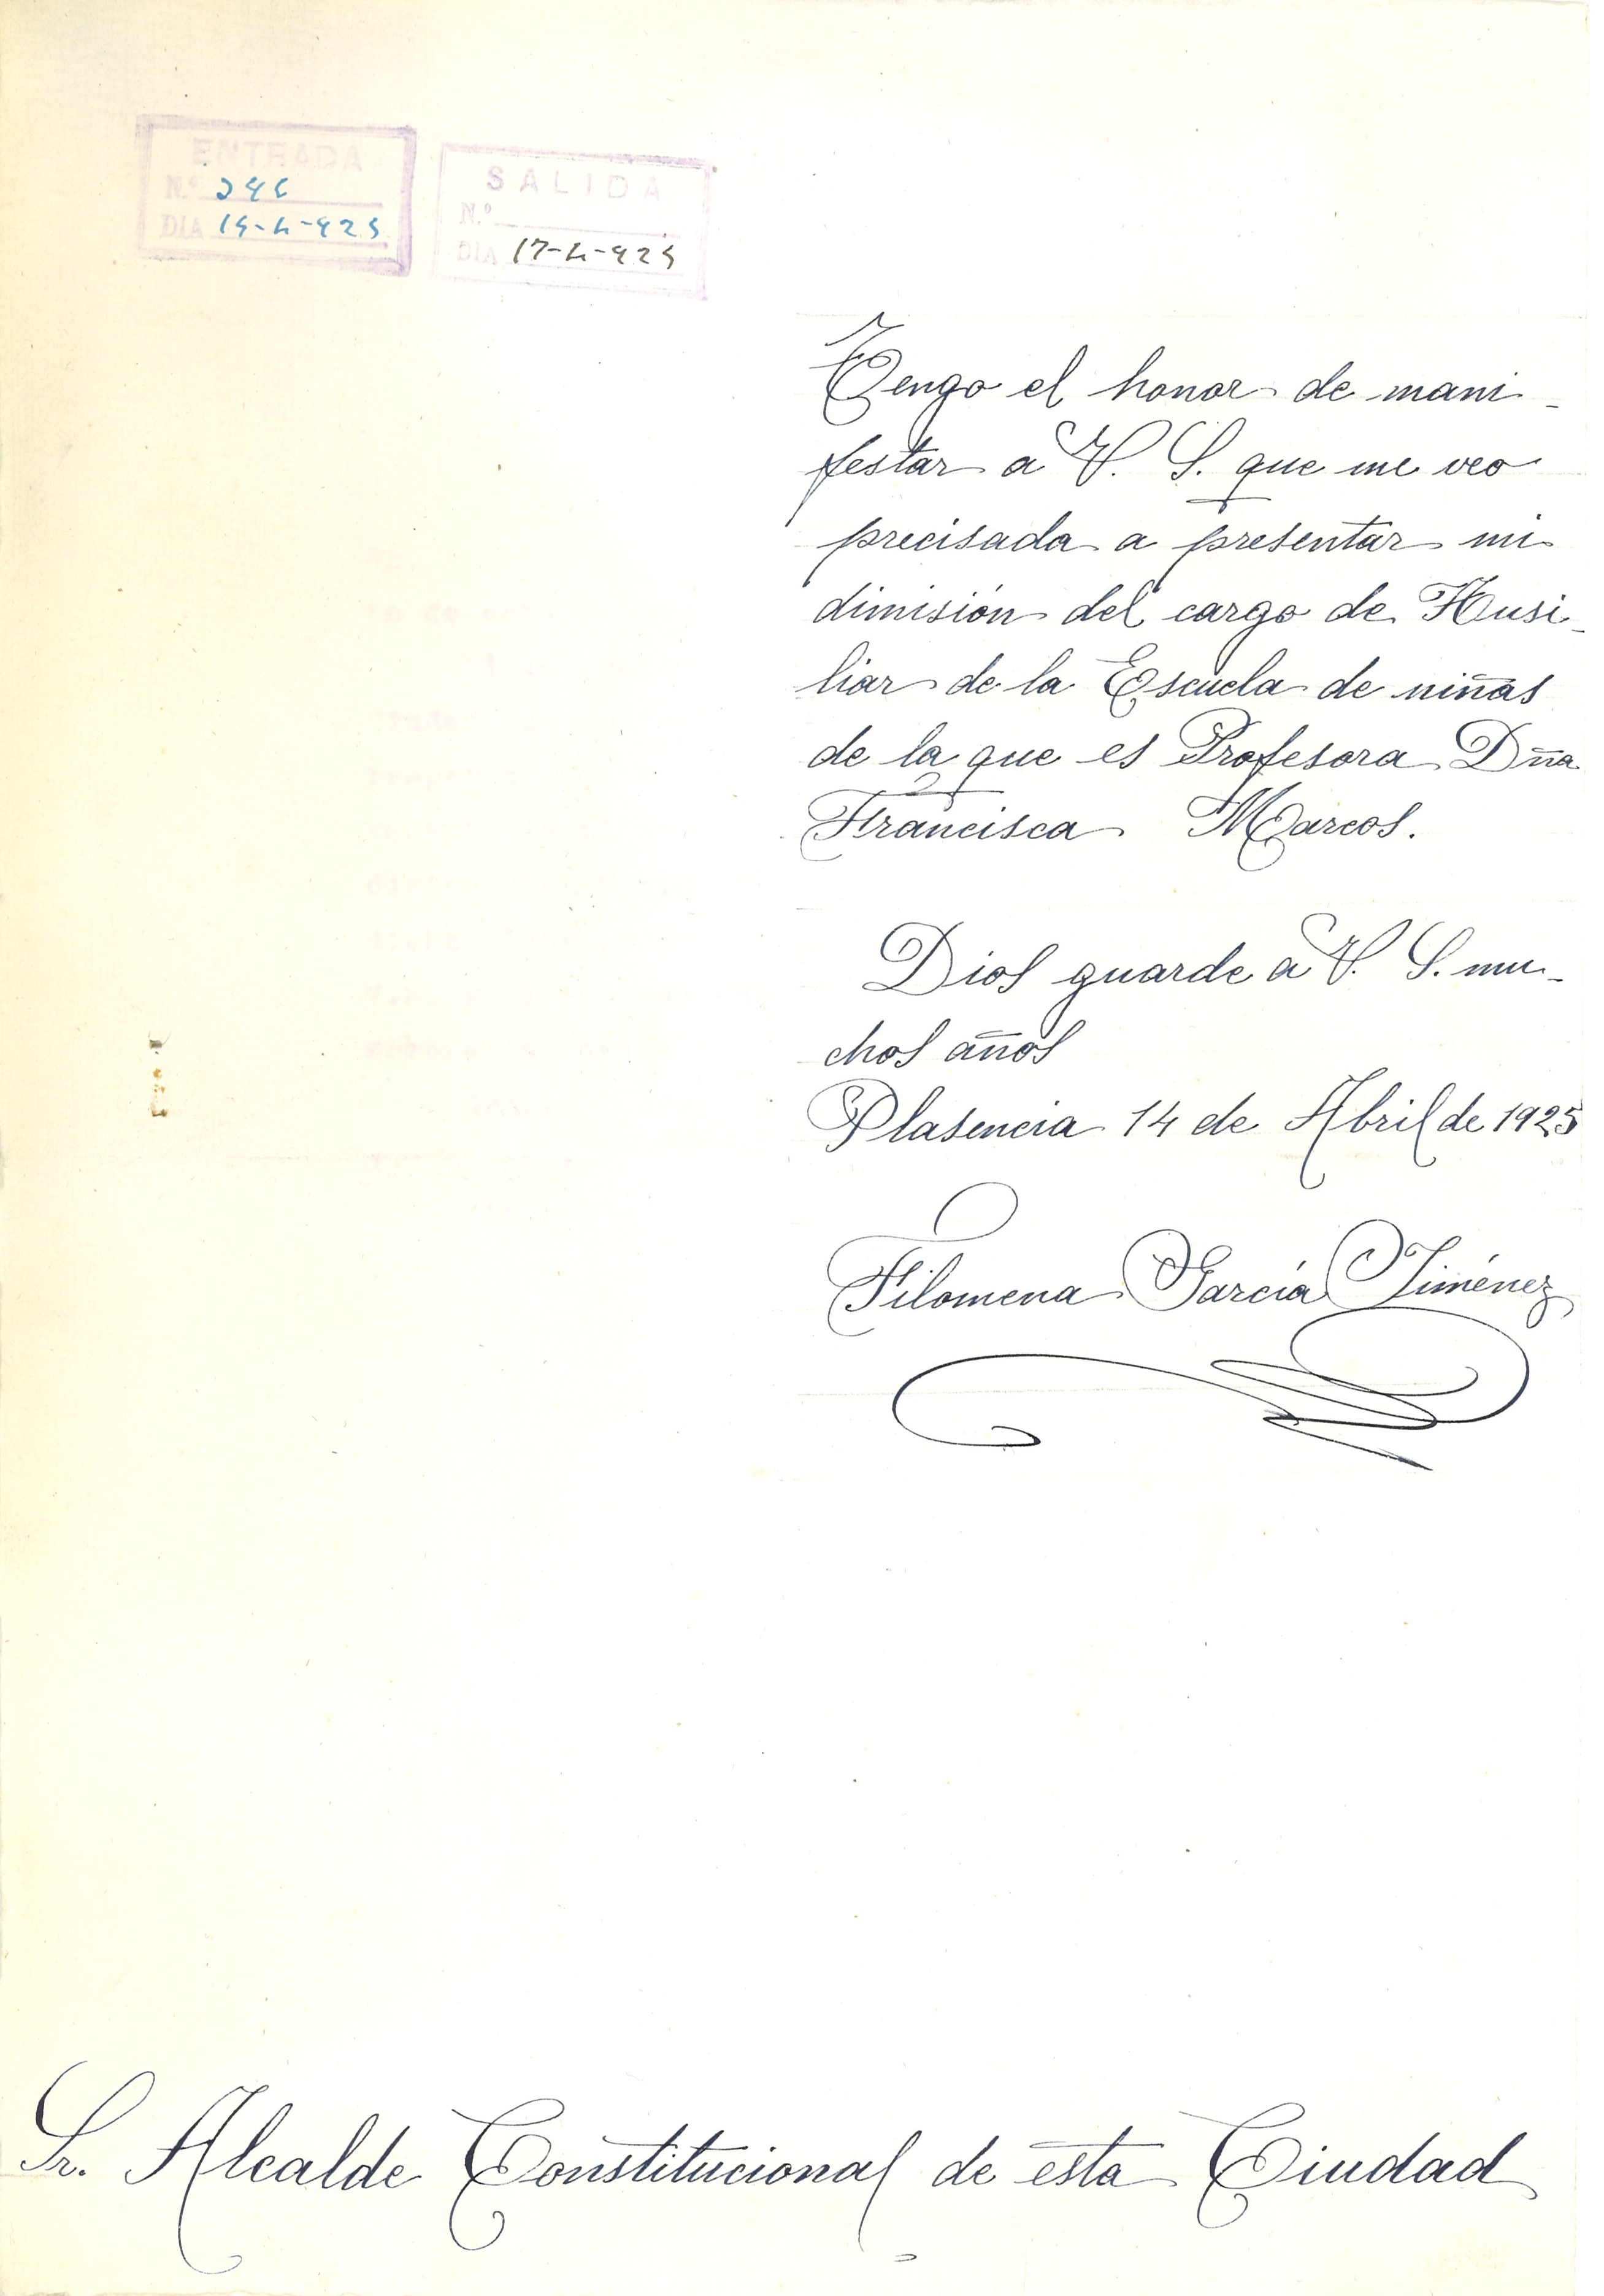 ENTRADA
N.º 246
DIA 15-4-925
SALIDA
N.º
DIA 17-4-925
Tengo el honor de mani-
festar a V. S. que me veo
precisada a presentar mi
dimisión del cargo de Ausi-
liar de la Escuela de niñas
de la que es Profesora Dña
Francisca Marcos.
Dios guarde a V. S. mu-
chos años
Plasencia 14 de Abril de 1925
Filomena García Jiménez
Sr. Alcalde Constitucional de esta Ciudad